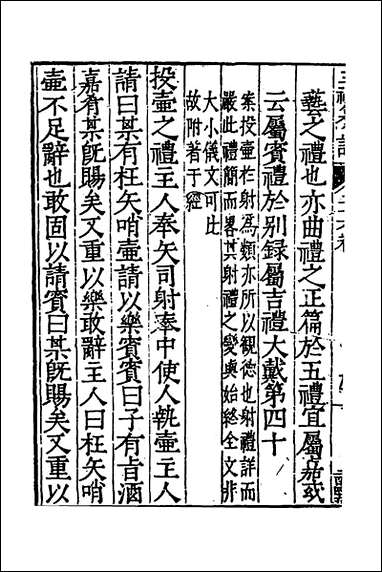 藝之禮也亦曲禮之正篇於五禮宜屬嘉或
云屬賓禮於別録屬吉禮大戴第四十
案投壺於射爲類亦所以觀徳也射禮詳而
嚴此禮簡而畧其射禮之變與始終全文非
大小儀文可比
故附著于經
投壺之禮主人奉矢司射奉中使人執壺主人
請曰某有枉矢哨壺請以樂賓賓曰子有旨酒
嘉肴某旣賜矣又重以樂敢辭主人曰枉矢哨
壺不足辭也敢固以請賓曰某旣賜矣又重以